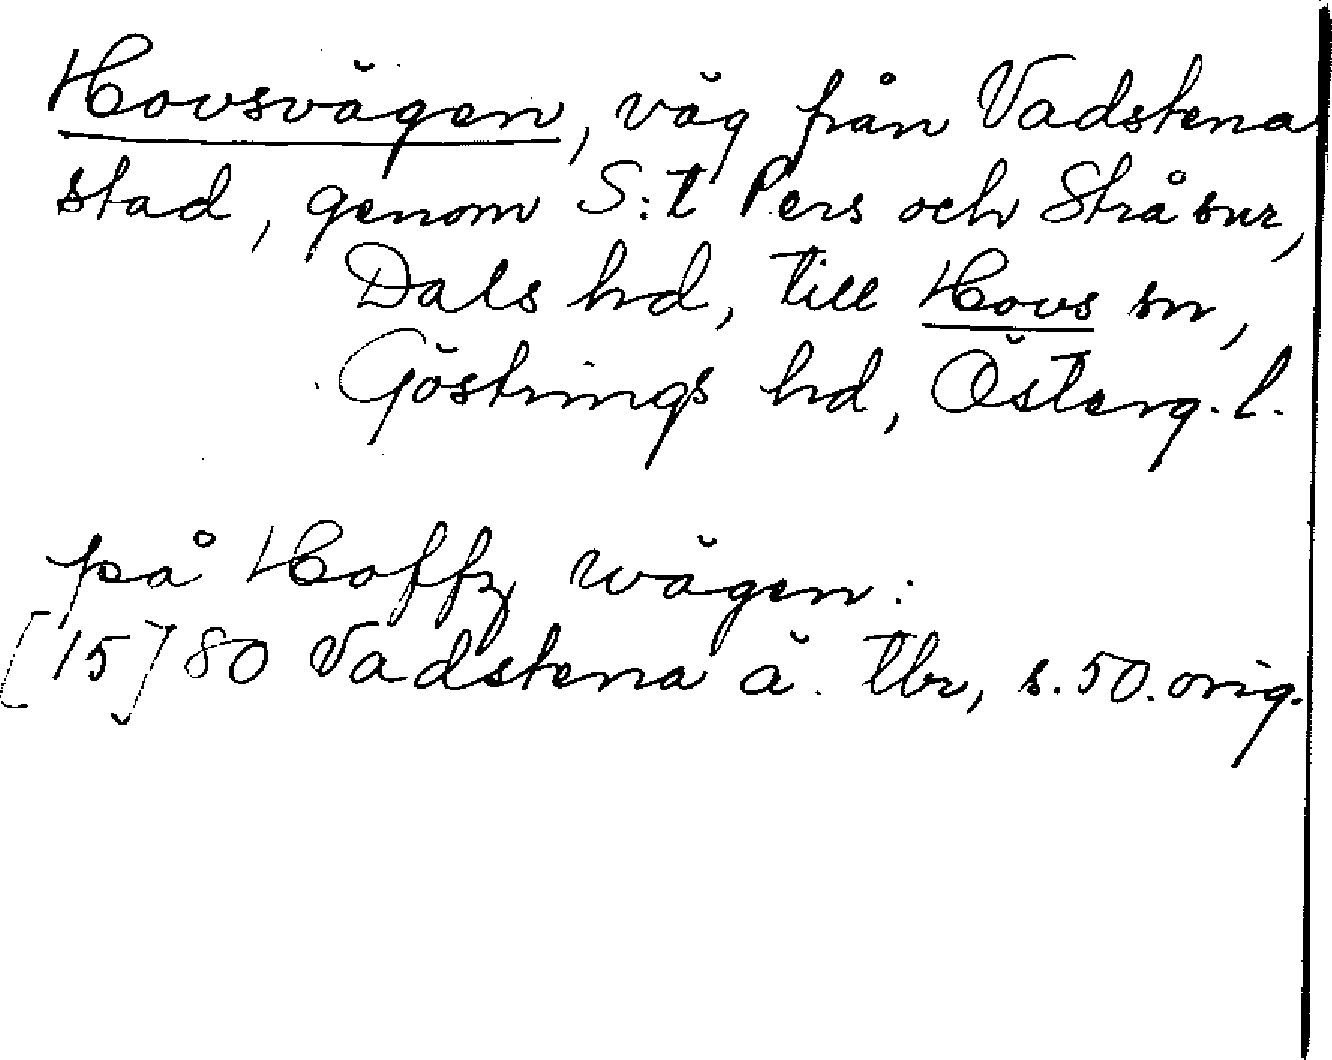 Hovsvägen, väg från Vadstena
stad, genom S:t Pers och Strå snr,
Dals hd, till Hovs sn,
Göstrings hd, Österg. l.
på Hoffz wägen:
[15]80 Vadstena ä. tbr, s. 50. orig.